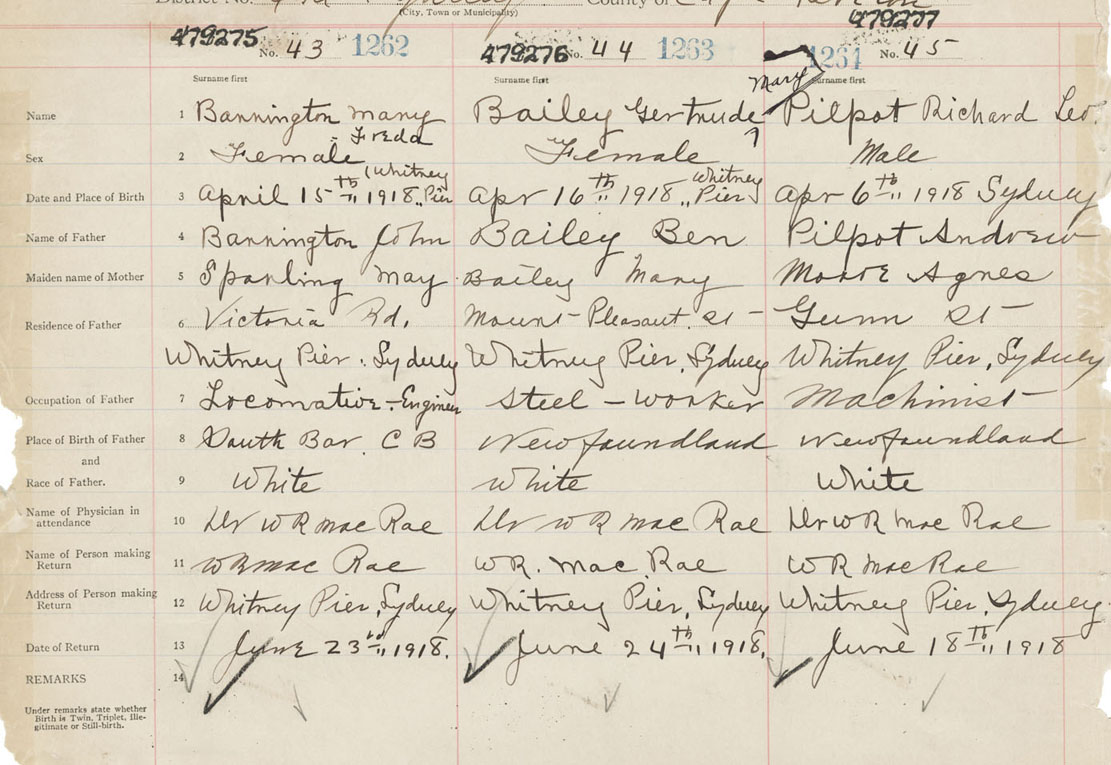 District No. County of
(City, Town or Municipality)
479275 479276 479277
No. 43 1262 No. 44 1263 1264 No. 45
Surname first Surname first Surname first
Mary
Name 1 Bannington Mary Bailey Gertrude Pilpot Richard Leo.
Freda
Sex 2 Female Female Male
(Whitney Whitney
Date and Place of Birth 3 April 15th 1918, Pier Apr 16th 1918, Pier Apr 6th 1918 Sydney
Name of Father 4 Bannington John Bailey Ben Pilpot Andrew
Maiden name of Mother 5 Sparling May Bailey Mary Moore Agnes
Residence of Father 6 Victoria Rd. Mount Pleasant St Gunn St
Whitney Pier, Sydney Whitney Pier, Sydney Whitney Pier, Sydney
Occupation of Father 7 Locomative-Engineer Steel-worker Machinist
Place of Birth of Father 8 South Bar C B Newfoundland Newfoundland
and
Race of Father. 9 White White White
Name of Physician in
attendance 10 Dr W R Mac Rae Dr W R Mac Rae Dr W R Mac Rae
Name of Person making
Return 11 W R Mac Rae W R. Mac Rae W R Mac Rae
Address of Person making
Return 12 Whitney Pier, Sydney Whitney Pier, Sydney Whitney Pier, Sydney
Date of Return 13 June 23rd, 1918. June 24th, 1918. June 18th, 1918
REMARKS 14
Under remarks state whether
Birth is Twin, Triplet, Ille-
gitimate or Still-birth.